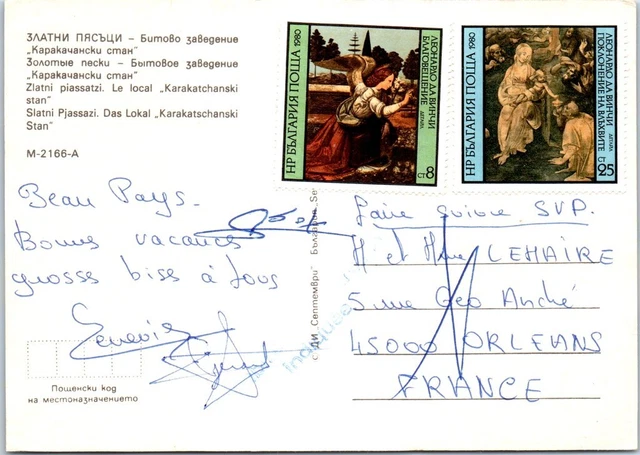 ЗЛАТНИ ПЯСЪЦИ – Битово заведение
„Каракачански стан“
Золотые пески – Бытовое заведение
„Каракачански стан“
Zlatni piassatzi. Le local „Karakatschanski
stan“
Slatni Pjassazi. Das Lokal „Karakatschanski
Stan“
М-2166-А
1980
НР БЪЛГАРИЯ ПОЩА
ЛЕОНАРДО ДА ВИНЧИ
БЛАГОВЕЩЕНИЕ
ДЕТАЙЛ
СТ 8
1980
НР БЪЛГАРИЯ ПОЩА
ЛЕОНАРДО ДА ВИНЧИ
ПОКЛОНЕНИЕ НА ВЛЪХВИТЕ
ДЕТАЙЛ
СТ 25
Beau Pays.
Bonnes vacances
grosses bises à tous
Gérard
Пощенски код
на местоназначението
ДИ „Септември“ България
faire suivre SVP.
M et Mme LEMAIRE
5 rue Geo André
45000 ORLEANS
FRANCE